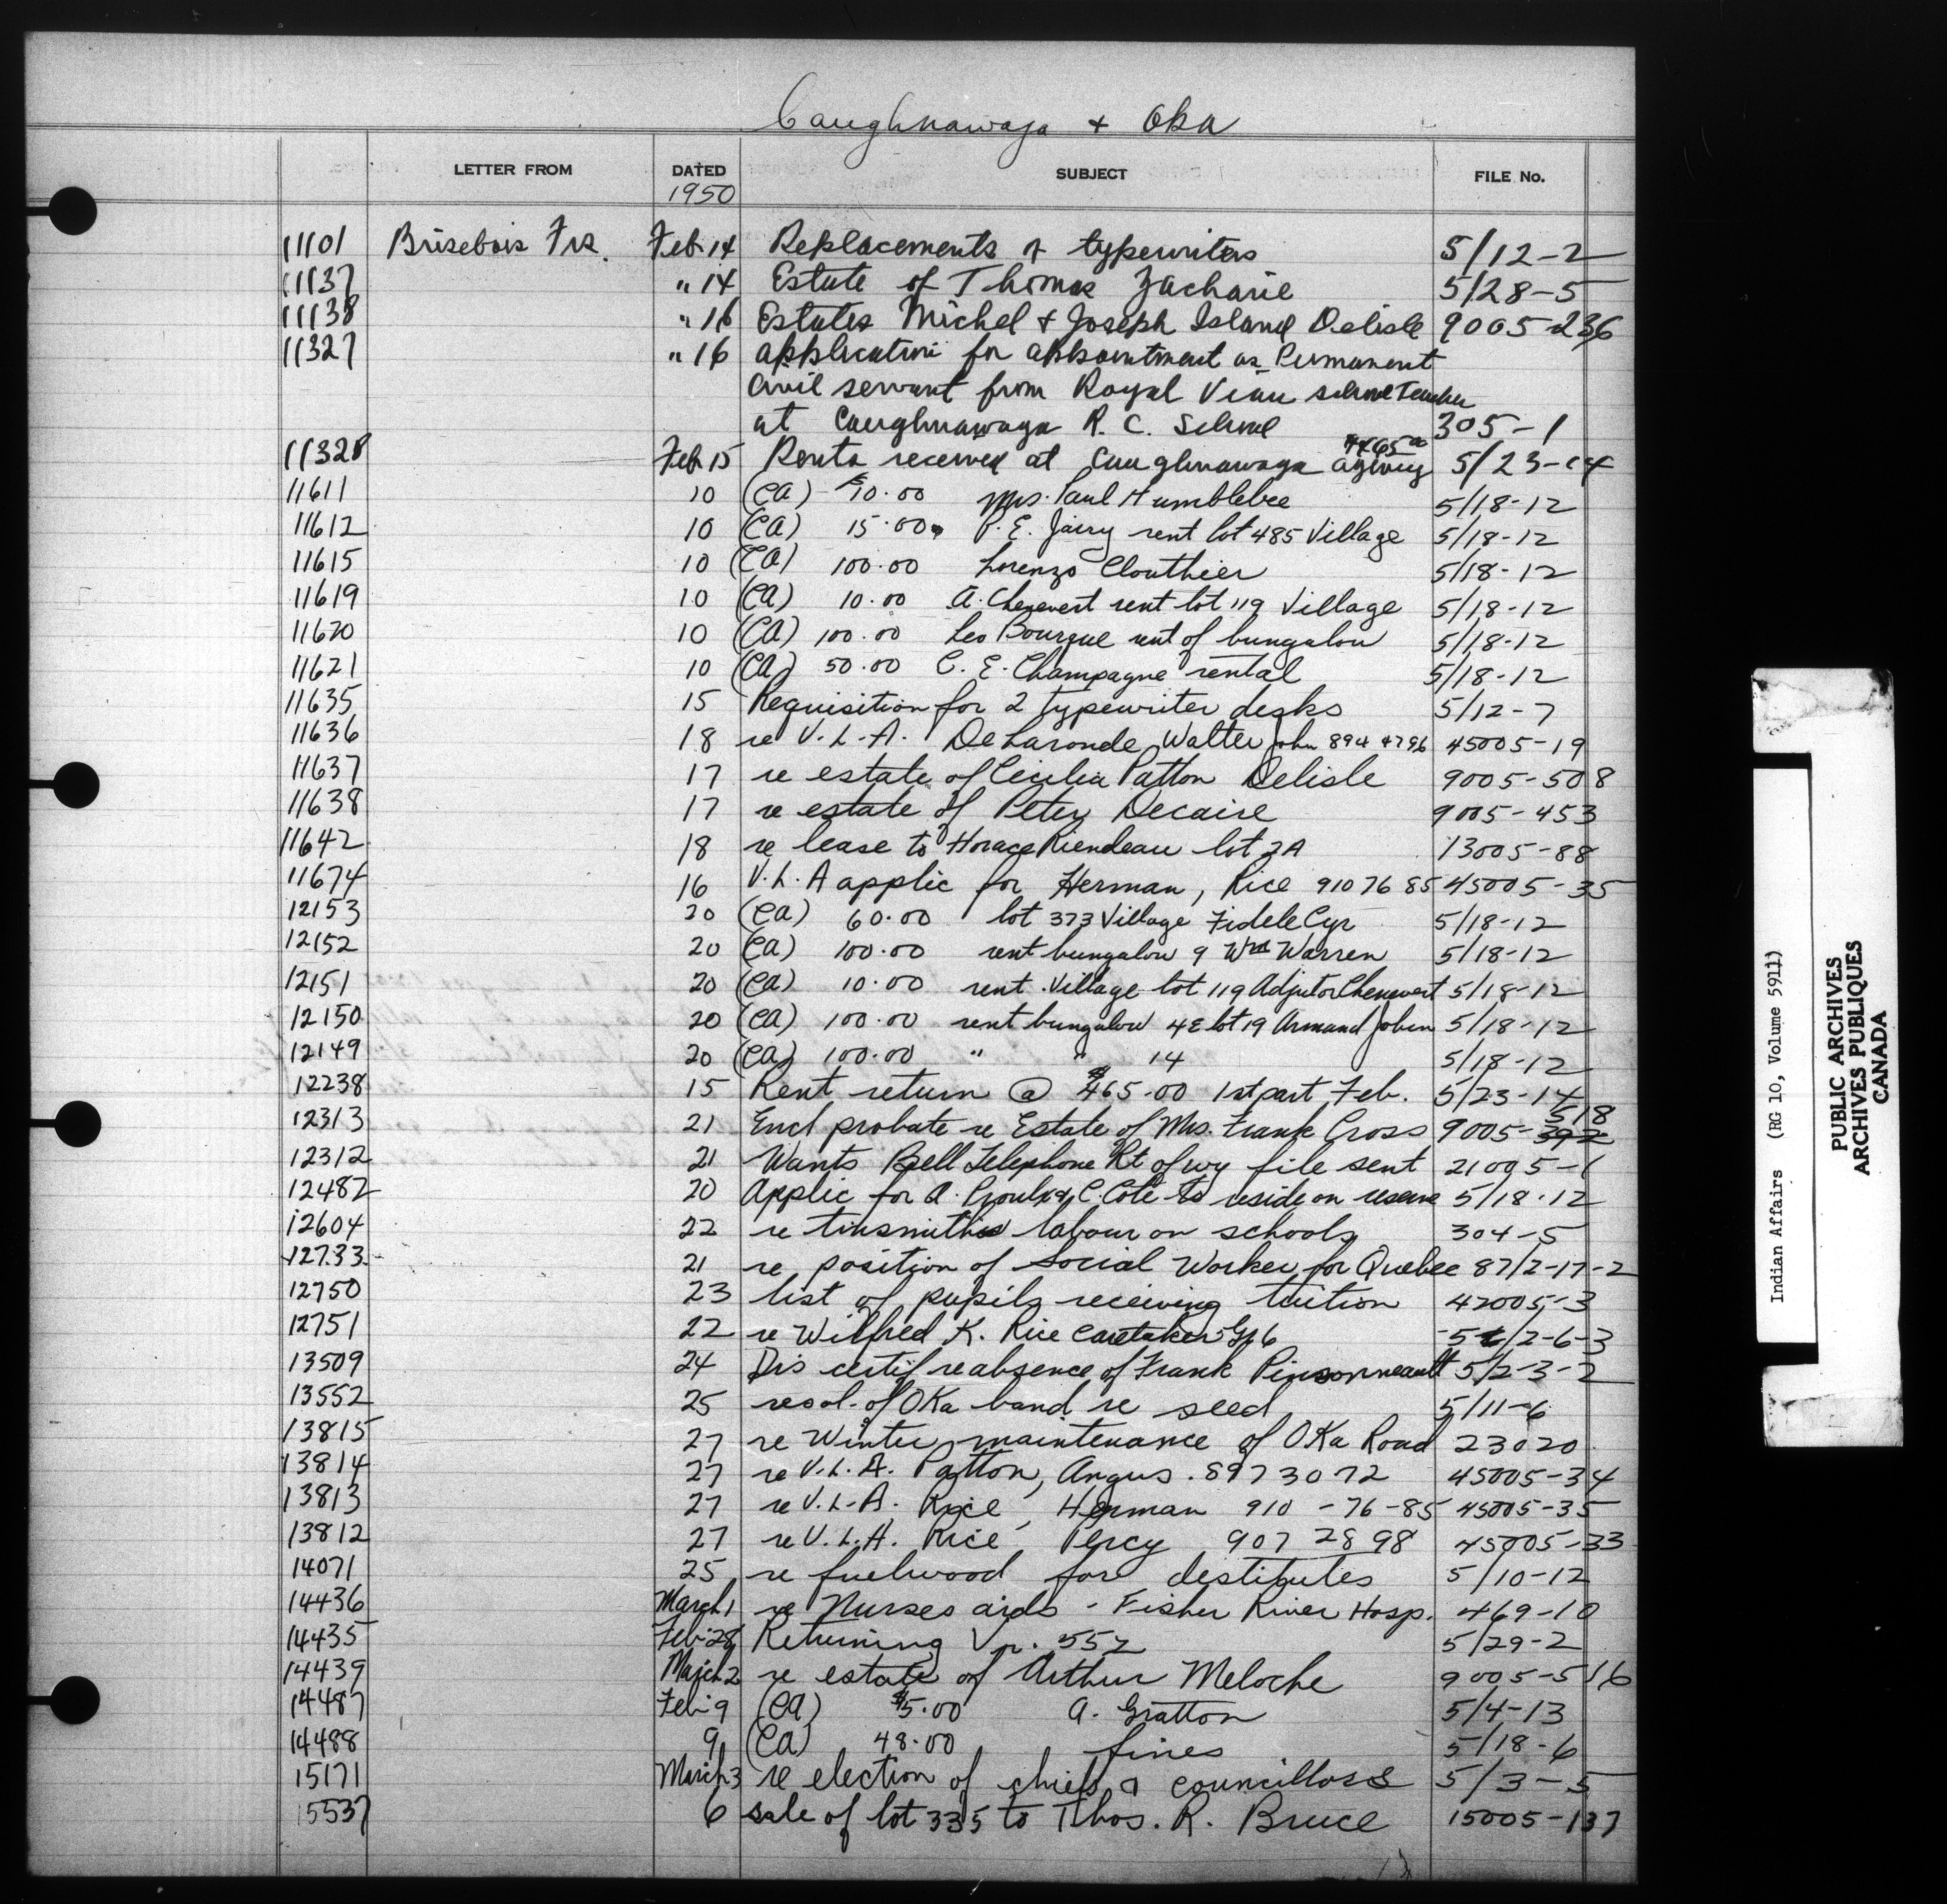 Caughnawaga + Oka
LETTER FROM DATED SUBJECT FILE No.
1950
11101 Brisebois Frs. Feb. 14 Replacements of typewriters 5/12-2
11137 " 14 Estate of Thomas Zacharie 5/28-5
11138 " 16 Estates Michel + Joseph Island Delisle 9005-236
11327 " 16 application for appointment as Permanent
civil servant from Royal Viau school Teacher
at Caughnawaga R. C. School 305-1
11328 Feb 15 Rents received at Caughnawaga agency 5/23-14
11611 10 (CA) $10.00 Mrs. Paul Humblebee 5/18-12
11612 10 (CA) 15.00 P. E. Jairy rent lot 485 Village 5/18-12
11615 10 (CA) 100.00 Lorenzo Clouthier 5/18-12
11619 10 (CA) 10.00 A. Chenevert rent lot 119 Village 5/18-12
11620 10 (CA) 100.00 Leo Bourque rent of bungalow 5/18-12
11621 10 (CA) 50.00 C. E. Champagne rental 5/18-12
11635 15 Requisition for 2 typewriter desks 5/12-7
11636 18 re V.L.A. DeLaronde, Walter John 894 4796 45005-19
11637 17 re estate of Cecilia Patton Delisle 9005-508
11638 17 re estate of Peter Decaire 9005-453
11642 18 re lease to Horace Riendeau lot 2A 13005-88
11674 16 V.L.A applic for Herman, Rice 910 76 85 45005-35
12153 20 (CA) 60.00 lot 373 Village Fidele Cyr 5/18-12
12152 20 (CA) 100.00 rent bungalow 9 Wm Warren 5/18-12
12151 20 (CA) 10.00 rent Village lot 119 Adjutor Chenevert 5/18-12
12150 20 (CA) 100.00 rent bungalow 4E lot 19 Armand Jobin 5/18-12
12149 20 (CA) 100.00 " " 14 5/18-12
12238 15 Rent return @ $465.00 1st part Feb. 5/23-14
12313 21 Encl probate re Estate of Mrs. Frank Cross 9005-518
12312 21 Wants Bell Telephone Rt of wy file sent 21005-1
12482 20 Applic for A. Proulx & C. Cote to reside on reserve 5/18-12
12604 22 re tinsmiths labour on schools 304-5
12733 21 re position of Social Worker for Quebec 87/2-17-2
12750 23 list of pupils receiving tuition 42005-3
12751 22 re Wilfred K. Rice Caretaker 5/2-6-3
13509 24 Drs certif re absence of Frank Pinsonneault 5/2-3-2
13552 25 resol. of Oka band re seed 5/11-6
13815 27 re Winter maintenance of Oka Road 23020
13814 27 re V.L.A. Patton, Angus. 897 3072 45005-34
13813 27 re V.L.A. Rice, Herman 910-76-85 45005-35
13812 27 re V.L.A. Rice Percy 907 28 98 45005-33
14071 25 re fuelwood for destitutes 5/10-12
14436 March 1 re Nurses aids - Fisher River Hosp. 469-10
14435 Feb. 28 Returning Vr. 552 5/29-2
14439 March 2 re estate of Arthur Meloche 9005-516
14487 Feb. 9 (CA) $5.00 A. Gratton 5/4-13
14488 9 (CA) 48.00 fines 5/18-6
15171 March 3 re election of chiefs & councillors 5/3-5
15537 6 sale of lot 335 to Thos. R. Bruce 15005-137
Indian Affairs (RG 10, Volume 5911)
PUBLIC ARCHIVES
ARCHIVES PUBLIQUES
CANADA